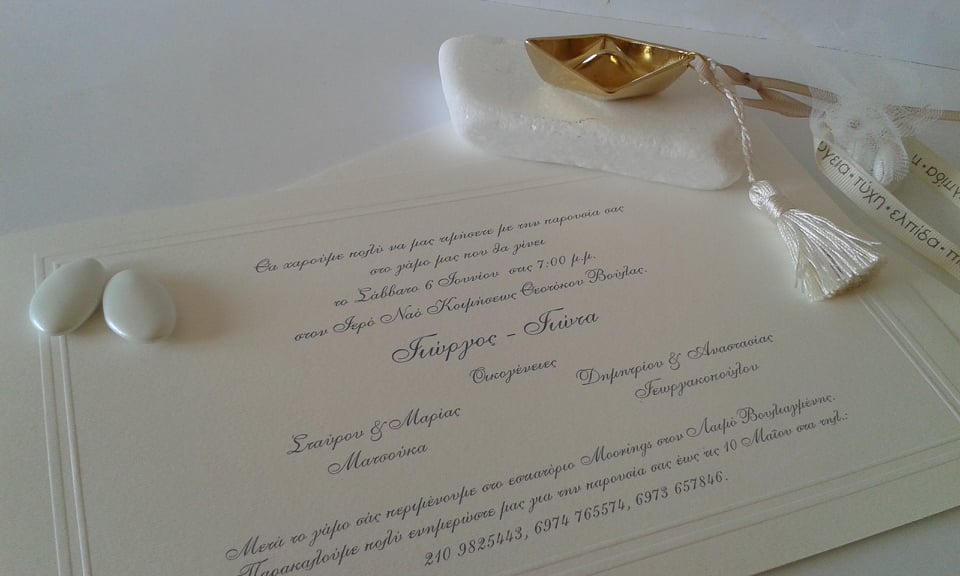 Θα χαρούμε πολύ να μας τιμήσετε με την παρουσία σας
στο γάμο μας που θα γίνει
το Σάββατο 6 Ιουνίου στις 7:00 μ.μ.
στον Ιερό Ναό Κοιμήσεως Θεοτόκου Βούλας.
Γιώργος - Γιώτα
Οικογένειες
Σταύρου & Μαρίας
Ματσούκα
Δημητρίου & Αναστασίας
Γεωργακοπούλου
Μετά το γάμο σάς περιμένουμε στο εστιατόριο Moorings στον Λαιμό Βουλιαγμένης.
Παρακαλούμε πολύ ενημερώστε μας για την παρουσία σας έως τις 10 Μαΐου στα τηλ.:
210 9825443, 6974 765574, 6973 657846.
υγεια • τύχη • ελπίδα • π
π • ελπίδα